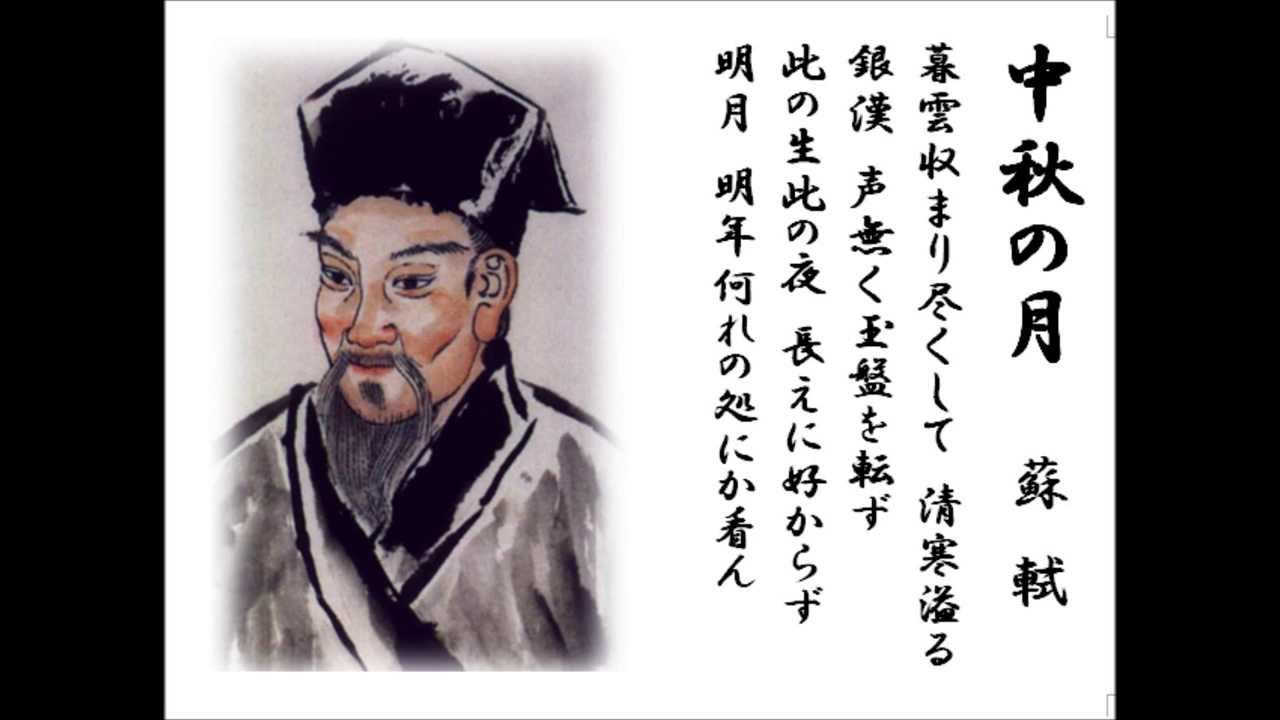 中秋の月 蘇軾
暮雲収まり尽くして 清寒溢る
銀漢 声無く玉盤を転ず
此の生此の夜 長えに好からず
明月 明年何れの処にか看ん